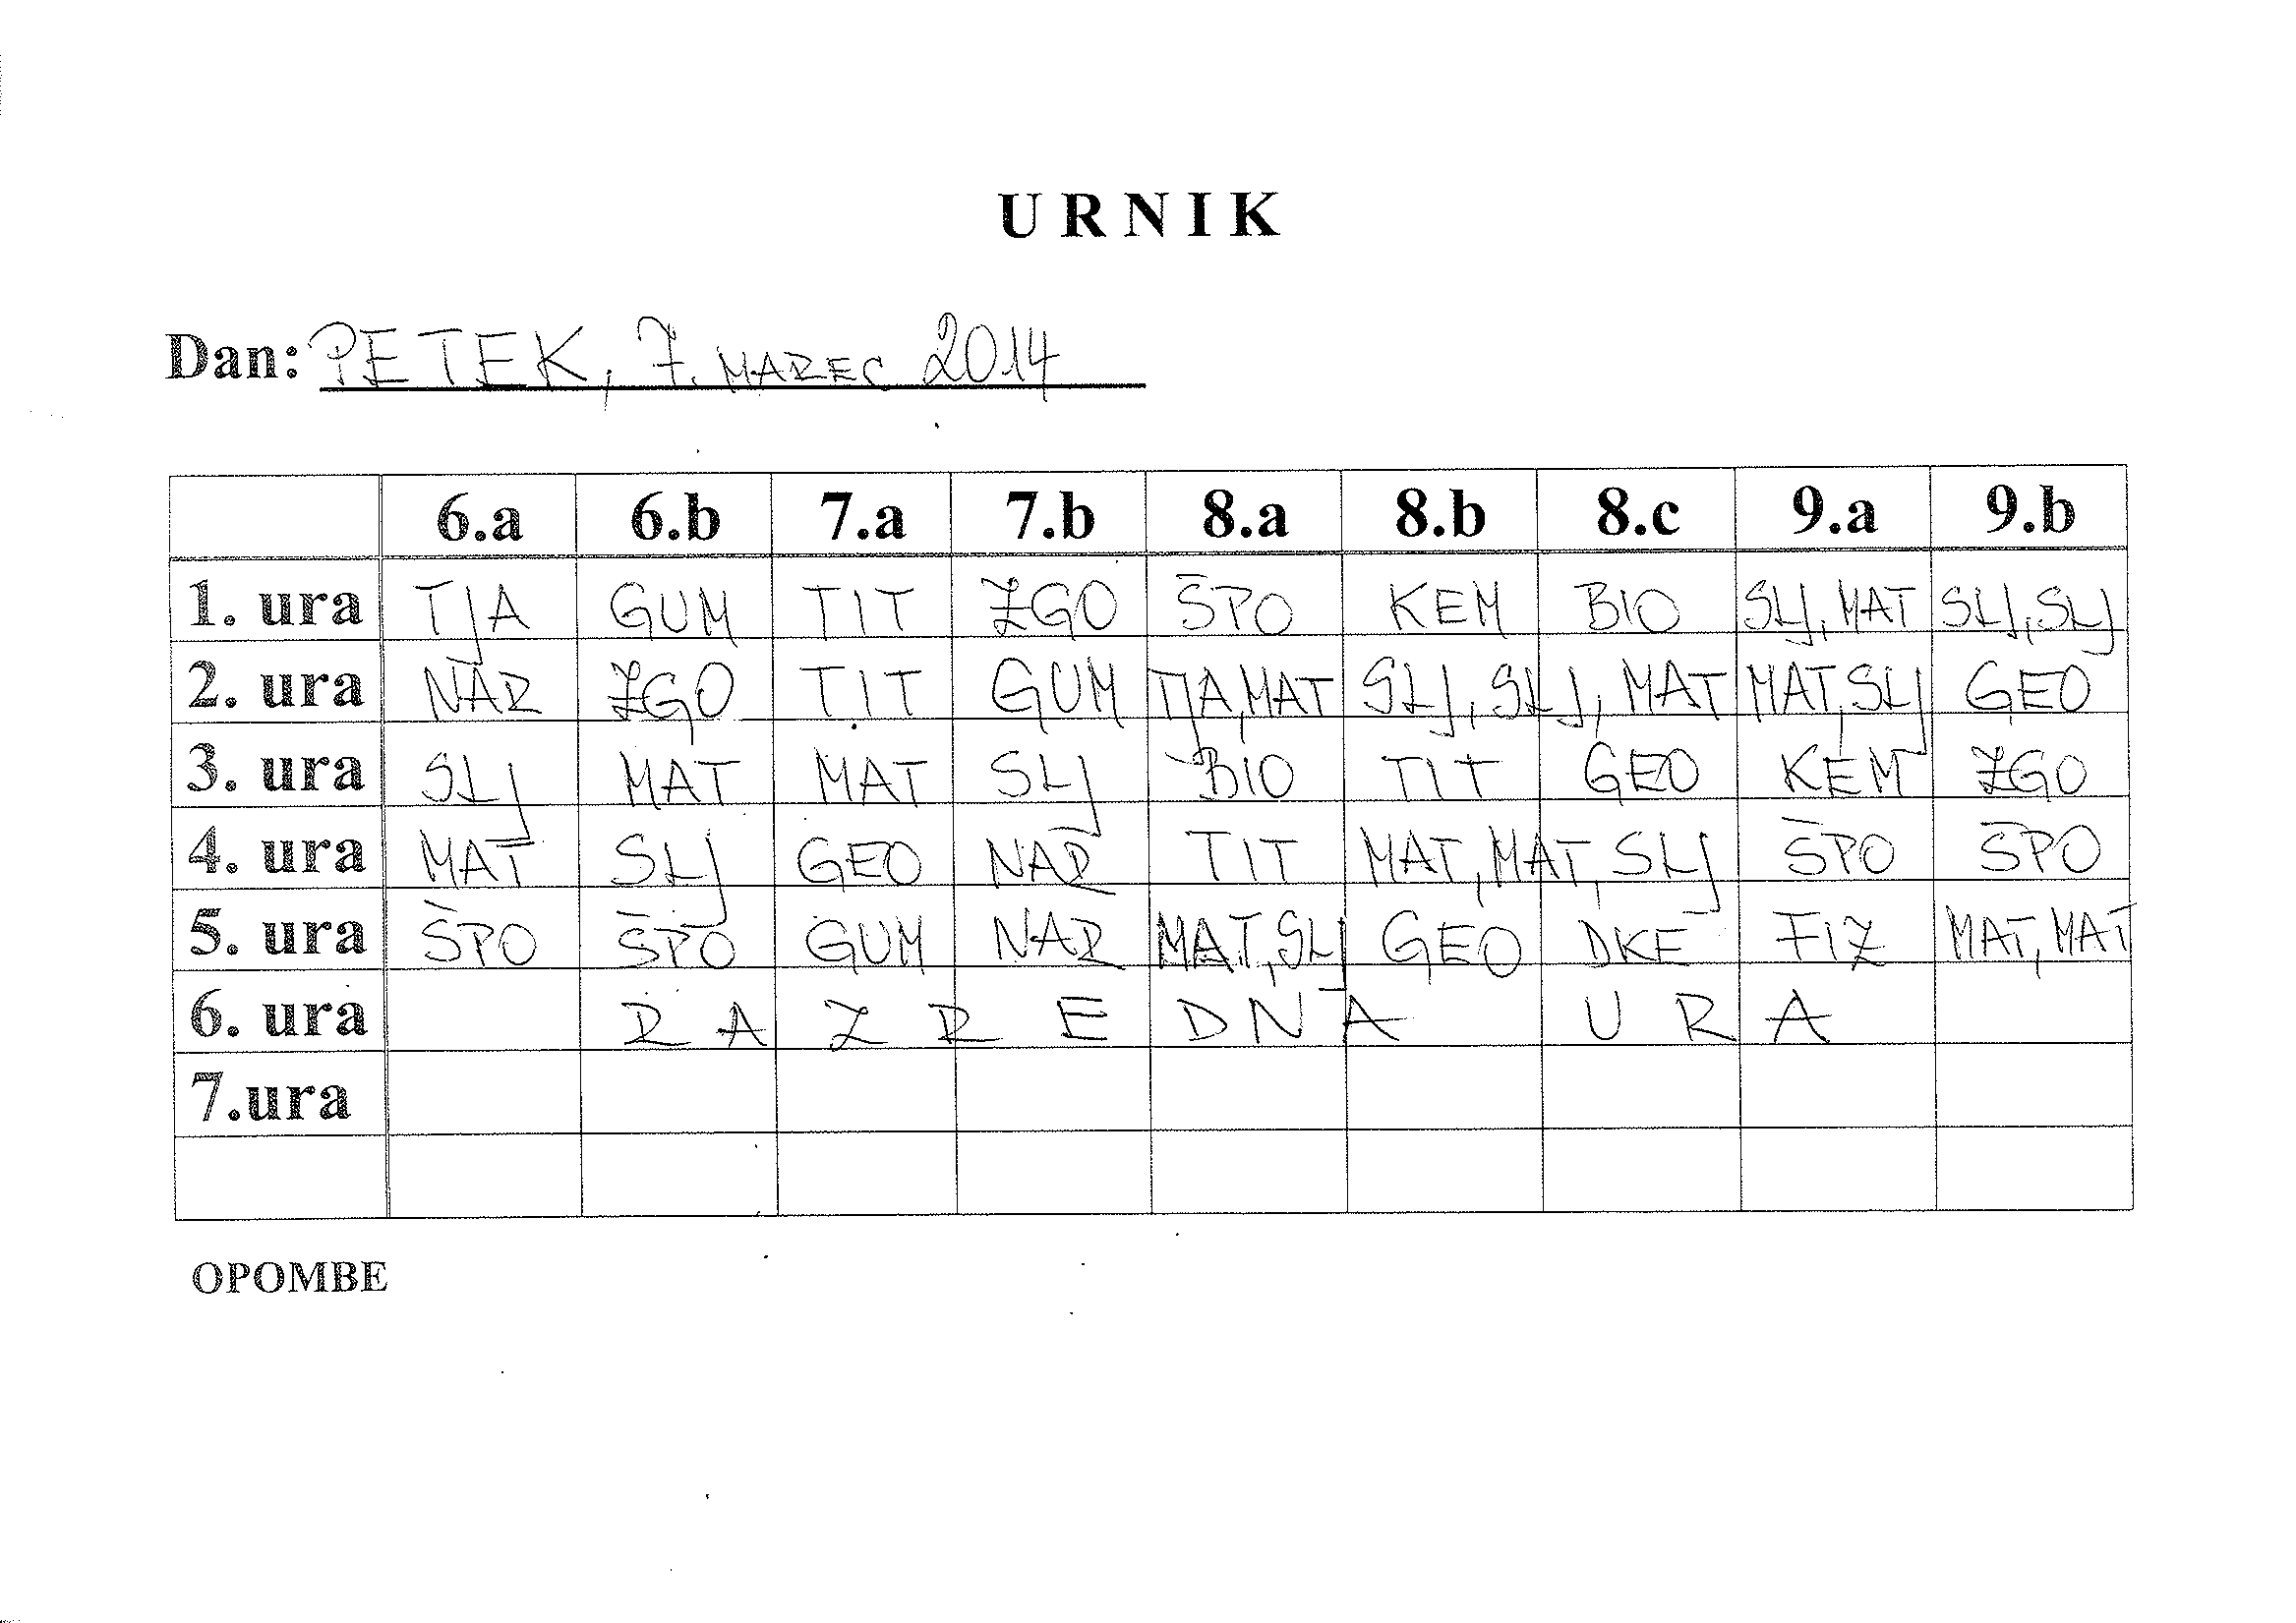 URNIK
Dan: PETEK, 7. MAREC 2014
6.a 6.b 7.a 7.b 8.a 8.b 8.c 9.a 9.b
1. ura TJA GUM TIT ZGO ŠPO KEM BIO SLJ, MAT SLJ, SLJ
2. ura NAR ZGO TIT GUM TJA, MAT SLJ, SLJ, MAT MAT, SLJ GEO
3. ura SLJ MAT MAT SLJ BIO TIT GEO KEM ZGO
4. ura MAT SLJ GEO NAR TIT MAT, MAT, SLJ ŠPO ŠPO
5. ura ŠPO ŠPO GUM NAR MAT, SLJ GEO DKE FIZ MAT, MAT
6. ura RAZREDNA URA
7.ura
OPOMBE